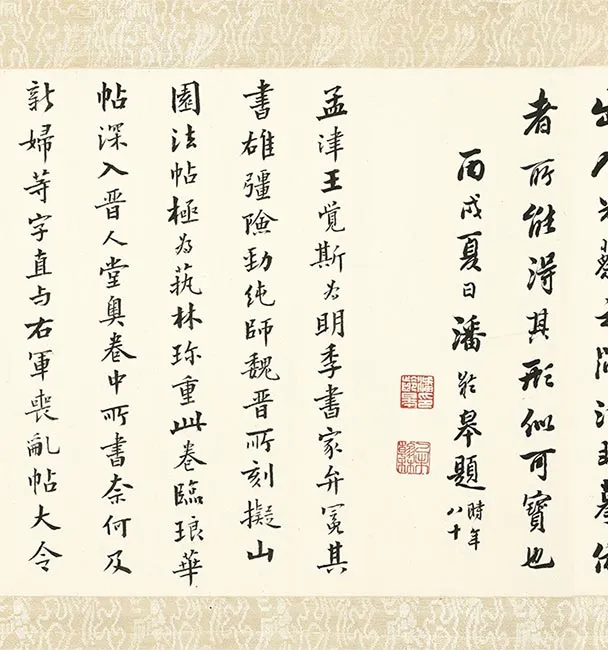 者所能得其形似可寶也
丙戌夏日潘齡皋題
時年
八十
孟津王覺斯為明季書家弁冕其
書雄彊險勁純師魏晉所刻擬山
園法帖極為蓺林珍重此卷臨琅華
帖深入晋人堂奧卷中所書柰何及
新婦等字直与右軍喪亂帖大令